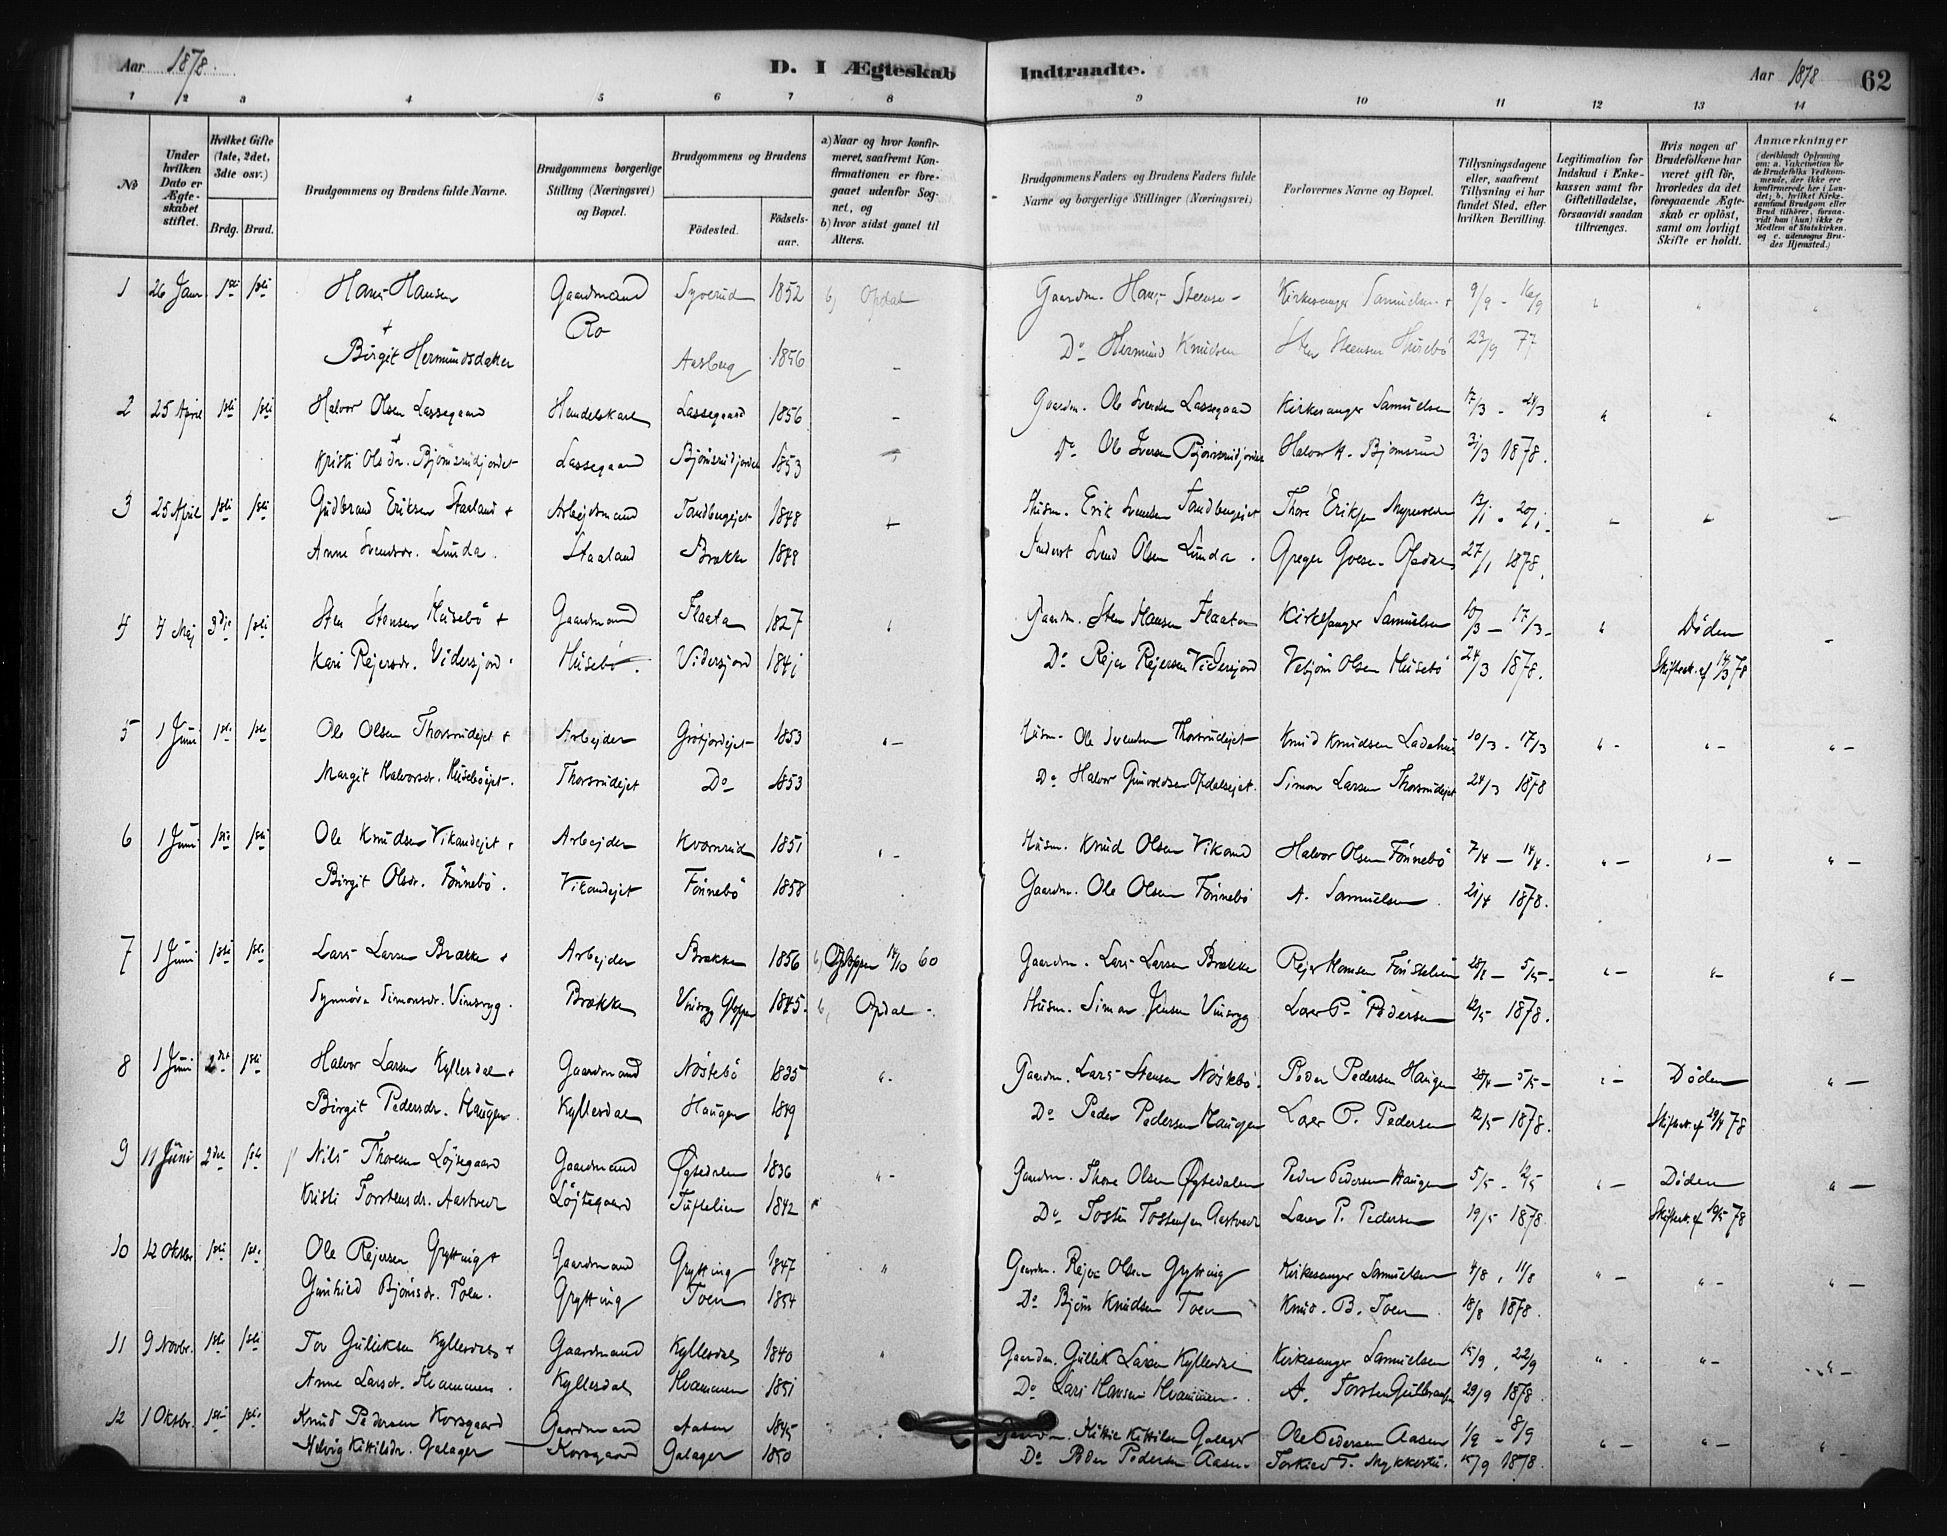 Aar 1878. D. I Ægteskab Indtraadte. Aar 1878 62
1 2 3 4 5 6 7 8 9 10 11 12 13 14
No
Under hvilken Dato er Ægteskabet stiftet.
Hvilket Gifte (1ste, 2det, 3dte osv.)
Brdg. Brud.
Brudgommens og Brudens fulde Navne.
Brudgommens borgerlige Stilling (Næringsvei) og Bopæl.
Brudgommens og Brudens
Födested. Födselsaar.
a) Naar og hvor konfirmeret, saafremt Konfirmationen er foregaaet udenfor Sognet, og
b) hvor sidst gaaet til Alters.
Brudgommens Faders og Brudens Faders fulde Navne og borgerlige Stillinger (Næringsvei)
Forlovernes Navne og Bopæl.
Tillysningsdagene eller, saafremt Tillysning ei har fundet Sted, efter hvilken Bevilling.
Legitimation for Indskud i Enkekassen samt for Giftetilladelse, forsaavidt saadan tiltrænges.
Hvis nogen af Brudefolkene har været gift för, hvorledes da det foregaaende Ægteskab er oplöst, samt om lovligt Skifte er holdt.
Anmærkninger (deriblandt Oplysning om: a. Vakcination for de Brudefolks Vedkommende, der ikke ere konfirmerede her i Landet; b. hvilket Kirkesamfund Brudgom eller Brud tilhörer, forsaavidt han (hun) ikke er Medlem af Statskirken, og c. udensogns Brudes Hjemsted.)
1 26 Janr 1ste 1ste Hans Hansen Gaardmand Syverud 1852 b, Opdal Gaardm. Hans Steense- Kirkesanger Samuelsen + 9/9 - 16/9 " " "
+ Ro
Birgit Hermundsdatter Aasberg 1856 - Do Hermund Knudsen Sten Steensen Husebö 23/9 77
2 25 April 1ste 1ste Halvor Olsen Lassegaard Handelskarl Lassegaard 1856 - Gaardm. Ole Svendsen Lassegaard Kirkesanger Samuelsen 17/3 - 24/3 " " "
Kristi Olsdr. Bjömsrudjordet Lassegaard Bjömsrudjordet 1853 Do Ole Iversen Bjömsrudjordet Halvor K. Bjömsrud 31/3 1878.
3 25 April 1ste 1ste Gudbrand Eriksen Staaland + Arbejdsmand Tandbergejet 1848 Husm. Erik Svendsen Tandbergejet Thore Eriksen 13/1 - 20/1 -
Anne Svendsdr. Lunda. Staaland Brække 1848 Inderst Svend Olsen Lunda. Greger Opdal 27/1 1878.
4 4 Maj 3die 1ste Sten Stensen Husebö + Gaardmand Flaata 1827 " Gaardm. Sten Hansen Flaata Kirkesanger Samuelsen 10/3 - 17/3 - " Döden -
Kari Rejersdr. Vidersjord. Husebö. Vidersjord 1841 Do Rejer Rejersen Vidersjord Vebjörn Olsen Husebö 24/3 1878. Skifteatt. af 14/3 78
5 1 Juni 1ste 1ste Ole Olsen Thorsrudejet + Arbejder Grötjordejet 1853 " - Husm. Ole Svendsen Thorsrudejet Knud Knudsen Ladehus 10/3 - 17/3 " - " - " -
Margit Halvorsdr. Huseböejet. Thorsrudejet Do 1853 Do Halvor Gunvoldsen Opdalsejet. Simon Larsen Thorsrudejet 24/3 1878
6 1 Juni 1ste 1ste Ole Knudsen Vikandejet + Arbejder Kvarnrud 1851 " - Husm. Knud Olsen Vikand Halvor Olsen Fönnebö 7/4 - 14/4. " - " - " -
Birgit Olsdr. Fönnebö. Vikandejet Fönnebö 1858 Gaardm. Ole Olsen Fönnebö A. Samuelsen. 21/4 1878.
7 1 Juni 1ste 1ste Lars Larsen Brække + Arbejder Brække 1856 14/10 60 Gaardm. Lars Larsen Brække Rejer Hansen - 5/5 - " - " - " -
Synnöva Simonsdr. Vinsryg. Brække Vinsryg Gloppen 1845. b, Opdal -. Husm. Simon Jensen Vinsryg Laver P. Pedersen 12/5 1878.
8 1 Juni 2det 1ste Halvor Larsen Kyllesdal + Gaardmand Nöstebö 1835 " - Gaardm. Lars Stensen Nöstebö. Peder Pedersen Haugen 28/4 - 5/5 - " - Döden " -
Birgit Pedersdr. Haugen. Kyllesdal Haugen 1849 Do Peder Pedersen Haugen Laver P. Pedersen 12/5 1878. Skifteatt. af 29/4 78
9 11 Juni 2det 1ste Nils Thoresen Löjtegaard Gaardmand Øgtedalen 1836 " - Gaardm. Thore Olsen Øgtedalen Peder Pedersen Haugen 5/5 - 12/5 " - Döden " -
Kristi Torstensdr. Aastvedt Löjtegaard Tuftelien 1842 Do Tosten Tostensen Aastvedt Laver P. Pedersen 19/5 1878. Skifteatt. af 10/5 78
10 12 Oktbr 1ste 1ste Ole Rejersen Grytting + Gaardmand Grytting 1847 " Gaardm. Rejer Olsen Grytting Kirkesanger Samuelsen 4/8, 11/8 " - " - " -
Gunhild Bjömsdr. Toen. Grytting Toen 1854 Do Bjöm Knudsen Toen Knud. B. Toen 18/8 1878.
11 9 Novbr. 1ste 1ste Tov Gulliksen Kyllesdal + Gaardmand Kyllesdal 1840 " Gaardm. Gullik Larsen Kyllesdal Kirkesanger Samuelsen 15/9, 22/9 " - " - " -
Anne Larsdr. Hvammen. Kyllesdal Hvammen 1851 Do Lars Hansen Hvammen. A. Torsten Gulbransen 29/9 1878.
12 1 Oktbr. 1ste 1ste Knud Pedersen Korsgaard Gaardmand Aasen 1845 Gaardm. Kittil Kittilsen Galager Ole Pedersen Aasen 1/9 - 8/9 " - " - " -
Helvig Kittilsdr. Galager Korsgaard Galager 1850 Do Peder Pedersen Aasen. Torkild T. 15/9 1878.